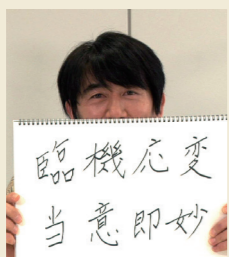 臨機応変
当意即妙